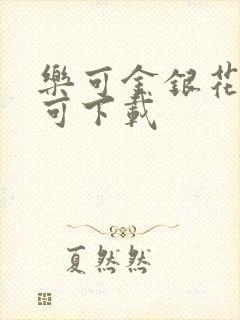 樂可金銀花
可下載
夏然然